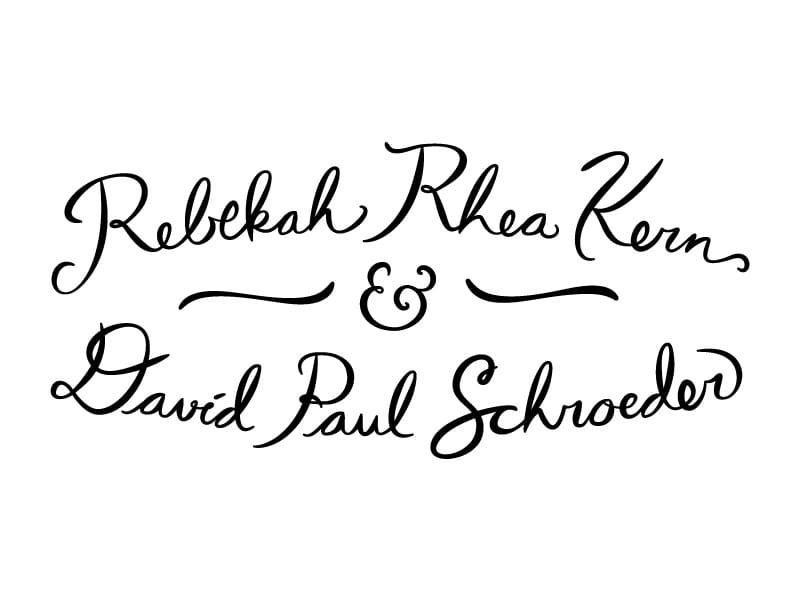 Rebekah Rhea Kern
&
David Paul Schroeder